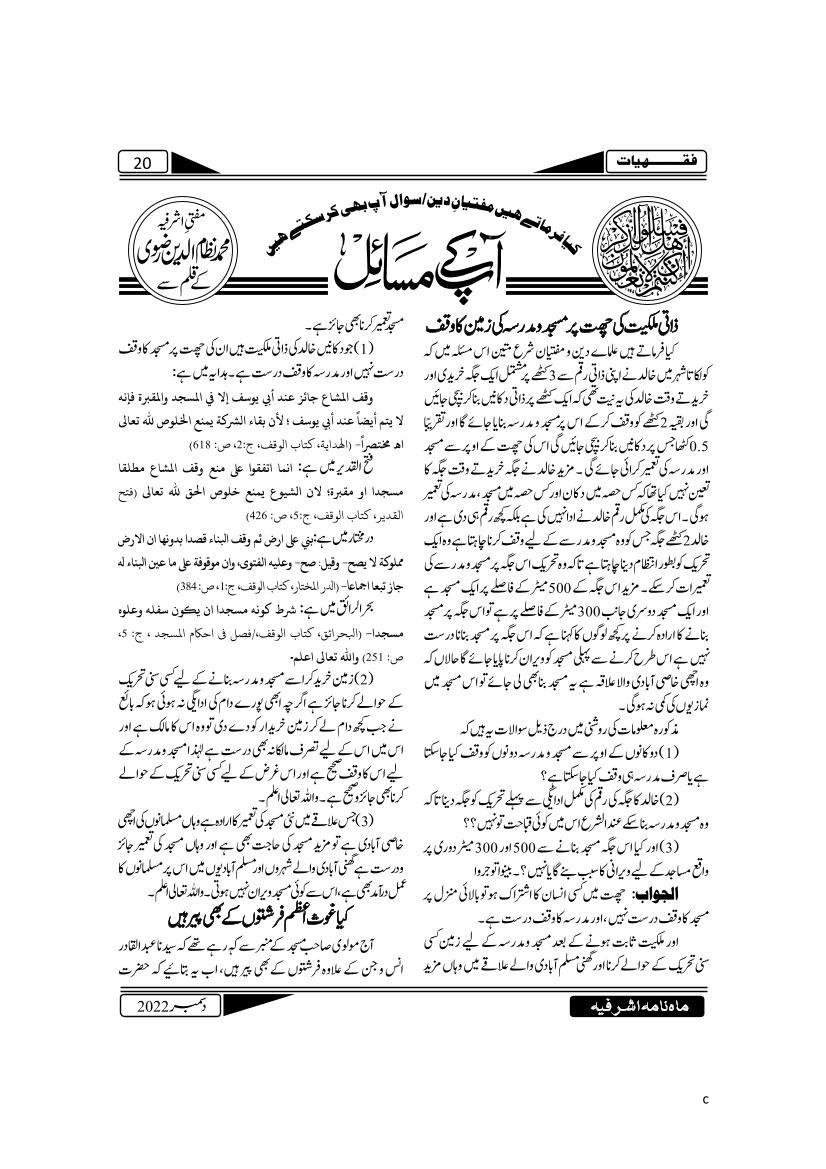 فقہیات
20
کیا فرماتے ہیں مفتیانِ دین/سوال آپ بھی کر سکتے ہیں
آپ کے مسائل
مفتیِ اشرفیہ
محمد نظام الدین رضوی
کے قلم سے
ذاتی ملکیت کی چھت پر مسجد و مدرسہ کی زمین کا وقف
کیا فرماتے ہیں علمائے دین و مفتیان شرع متین اس مسئلہ میں کہ
کولکاتا شہر میں خالد نے اپنی ذاتی رقم سے 3 کٹھے پر مشتمل ایک جگہ خریدی اور
خریدتے وقت خالد کی یہ نیت تھی کہ ایک کٹھے پر ذاتی دکانیں بنا کر بیچی جائیں
گی اور بقیہ 2 کٹھے کو وقف کر کے اس پر مسجد و مدرسہ بنایا جائے گا اور تقریبًا
0.5 کٹھا جس پر دکانیں بنا کر بیچی جائیں گی اس کی چھت کے اوپر سے مسجد
اور مدرسہ کی تعمیر کرائی جائے گی ۔ مزید خالد نے جگہ خریدتے وقت جگہ کا
تعین نہیں کیا تھا کہ کس حصہ میں دکان اور کس حصہ میں مسجد ، مدرسہ کی تعمیر
ہوگی ۔ اس جگہ کی مکمل رقم خالد نے ادا نہیں کی ہے بلکہ کچھ رقم ہی دی ہے اور
خالد 2 کٹھے جگہ جس کو وہ مسجد و مدرسے کے لیے وقف کرنا چاہتا ہے وہ ایک
تحریک کو بطور انتظام دینا چاہتا ہے تاکہ وہ تحریک اس جگہ پر مسجد و مدرسے کی
تعمیرات کر سکے ۔ مزید اس جگہ کے 500 میٹر کے فاصلے پر ایک مسجد ہے
اور ایک مسجد دوسری جانب 300 میٹر کے فاصلے پر ہے تو اس جگہ پر مسجد
بنانے کا ارادہ کرنے پر کچھ لوگوں کا کہنا ہے کہ اس جگہ پر مسجد بنانا درست
نہیں ہے اس طرح کرنے سے پہلی مسجد کو ویران کرنا پایا جائے گا حالاں کہ
وہ اچھی خاصی آبادی والا علاقہ ہے یہ مسجد بنا بھی لی جائے تو اس مسجد میں
نمازیوں کی کمی نہ ہوگی ۔
مذکورہ معلومات کی روشنی میں درج ذیل سوالات یہ ہیں کہ
(1) دوکانوں کے اوپر سے مسجد و مدرسہ دونوں کو وقف کیا جا سکتا
ہے یا صرف مدرسہ ہی وقف کیا جا سکتا ہے؟
(2) خالد کا جگہ کی رقم کی مکمل ادائیگی سے پہلے تحریک کو جگہ دینا تاکہ
وہ مسجد و مدرسہ بنا سکے عند الشرع اس میں کوئی قباحت تو نہیں؟؟
(3) اور کیا اس جگہ مسجد بنانے سے 500 اور 300 میٹر دوری پر
واقع مساجد کے لیے ویرانی کا سبب بنے گا یا نہیں؟۔ بینوا توجروا
الجواب: چھت میں کسی انسان کا اشتراک ہو تو بالائی منزل پر
مسجد کا وقف درست نہیں ، اور مدرسہ کا وقف درست ہے۔
اور ملکیت ثابت ہونے کے بعد مسجد و مدرسہ کے لیے زمین کسی
سنی تحریک کے حوالے کرنا اور گھنی مسلم آبادی والے علاقے میں وہاں مزید
مسجد تعمیر کرنا بھی جائز ہے۔
(1) جو دکانیں خالد کی ذاتی ملکیت ہیں ان کی چھت پر مسجد کا وقف
درست نہیں اور مدرسہ کا وقف درست ہے۔ ہدایہ میں ہے:
وقف المشاع جائز عند أبي يوسف إلا في المسجد والمقبرة فإنه
لا يتم أيضاً عند أبي يوسف ؛ لأن بقاء الشركة يمنع الخلوص لله تعالى
اه مختصراً– (الهداية، كتاب الوقف، ج:2، ص: 618)
فتح القدیر میں ہے: انما اتفقوا على منع وقف المشاع مطلقا
مسجدا او مقبرة؛ لان الشيوع يمنع خلوص الحق لله تعالى (فتح
القدير، كتاب الوقف، ج:5، ص: 426)
درمختار میں ہے:بني على ارض ثم وقف البناء قصدا بدونها ان الارض
مملوكة لا يصح– وقيل: صح– وعليه الفتوى، وان موقوفة على ما عين البناء له
جاز تبعا اجماعا– (الدر المختار، كتاب الوقف، ج:1، ص: 384)
بحر الرائق میں ہے: شرط كونه مسجدا ان يكون سفله وعلوه
مسجدا– (البحرائق، كتاب الوقف،/فصل فى احكام المسجد ، ج: 5،
ص: 251) والله تعالى اعلم–
(2) زمین خرید کر اسے مسجد و مدرسہ بنانے کے لیے کسی سنی تحریک
کے حوالے کرنا جائز ہے اگرچہ ابھی پورے دام کی ادائیگی نہ ہوئی ہو کہ بائع
نے جب کچھ دام لے کر زمین خریدار کو دے دی تو وہ اس کا مالک ہے اور
اس میں اس کے لیے تصرف مالکانہ بھی درست ہے لہٰذا مسجد و مدرسہ کے
لیے اس کا وقف صحیح ہے اور اس غرض کے لیے کسی سنی تحریک کے حوالے
کرنا بھی جائز و صحیح ہے ۔ واللہ تعالی اعلم ۔
(3) جس علاقے میں نئی مسجد کی تعمیر کا ارادہ ہے وہاں مسلمانوں کی اچھی
خاصی آبادی ہے تو مزید مسجد کی حاجت بھی ہے اور وہاں مسجد کی تعمیر جائز
و درست ہے گھنی آبادی والے شہروں اور مسلم آبادیوں میں اس پر مسلمانوں کا
عمل درآمد بھی ہے ، اس سے کوئی مسجد ویران نہیں ہوتی۔ واللہ تعالی اعلم۔
کیا غوث اعظم فرشتوں کے بھی پیر ہیں
آج مولوی صاحب مسجد کے منبر سے کہہ رہے تھے کہ سیدنا عبد القادر
انس و جن کے علاوہ فرشتوں کے بھی پیر ہیں ، اب یہ بتائیے کہ حضرت
ماہ نامہ اشرفیہ
دسمبر 2022
c